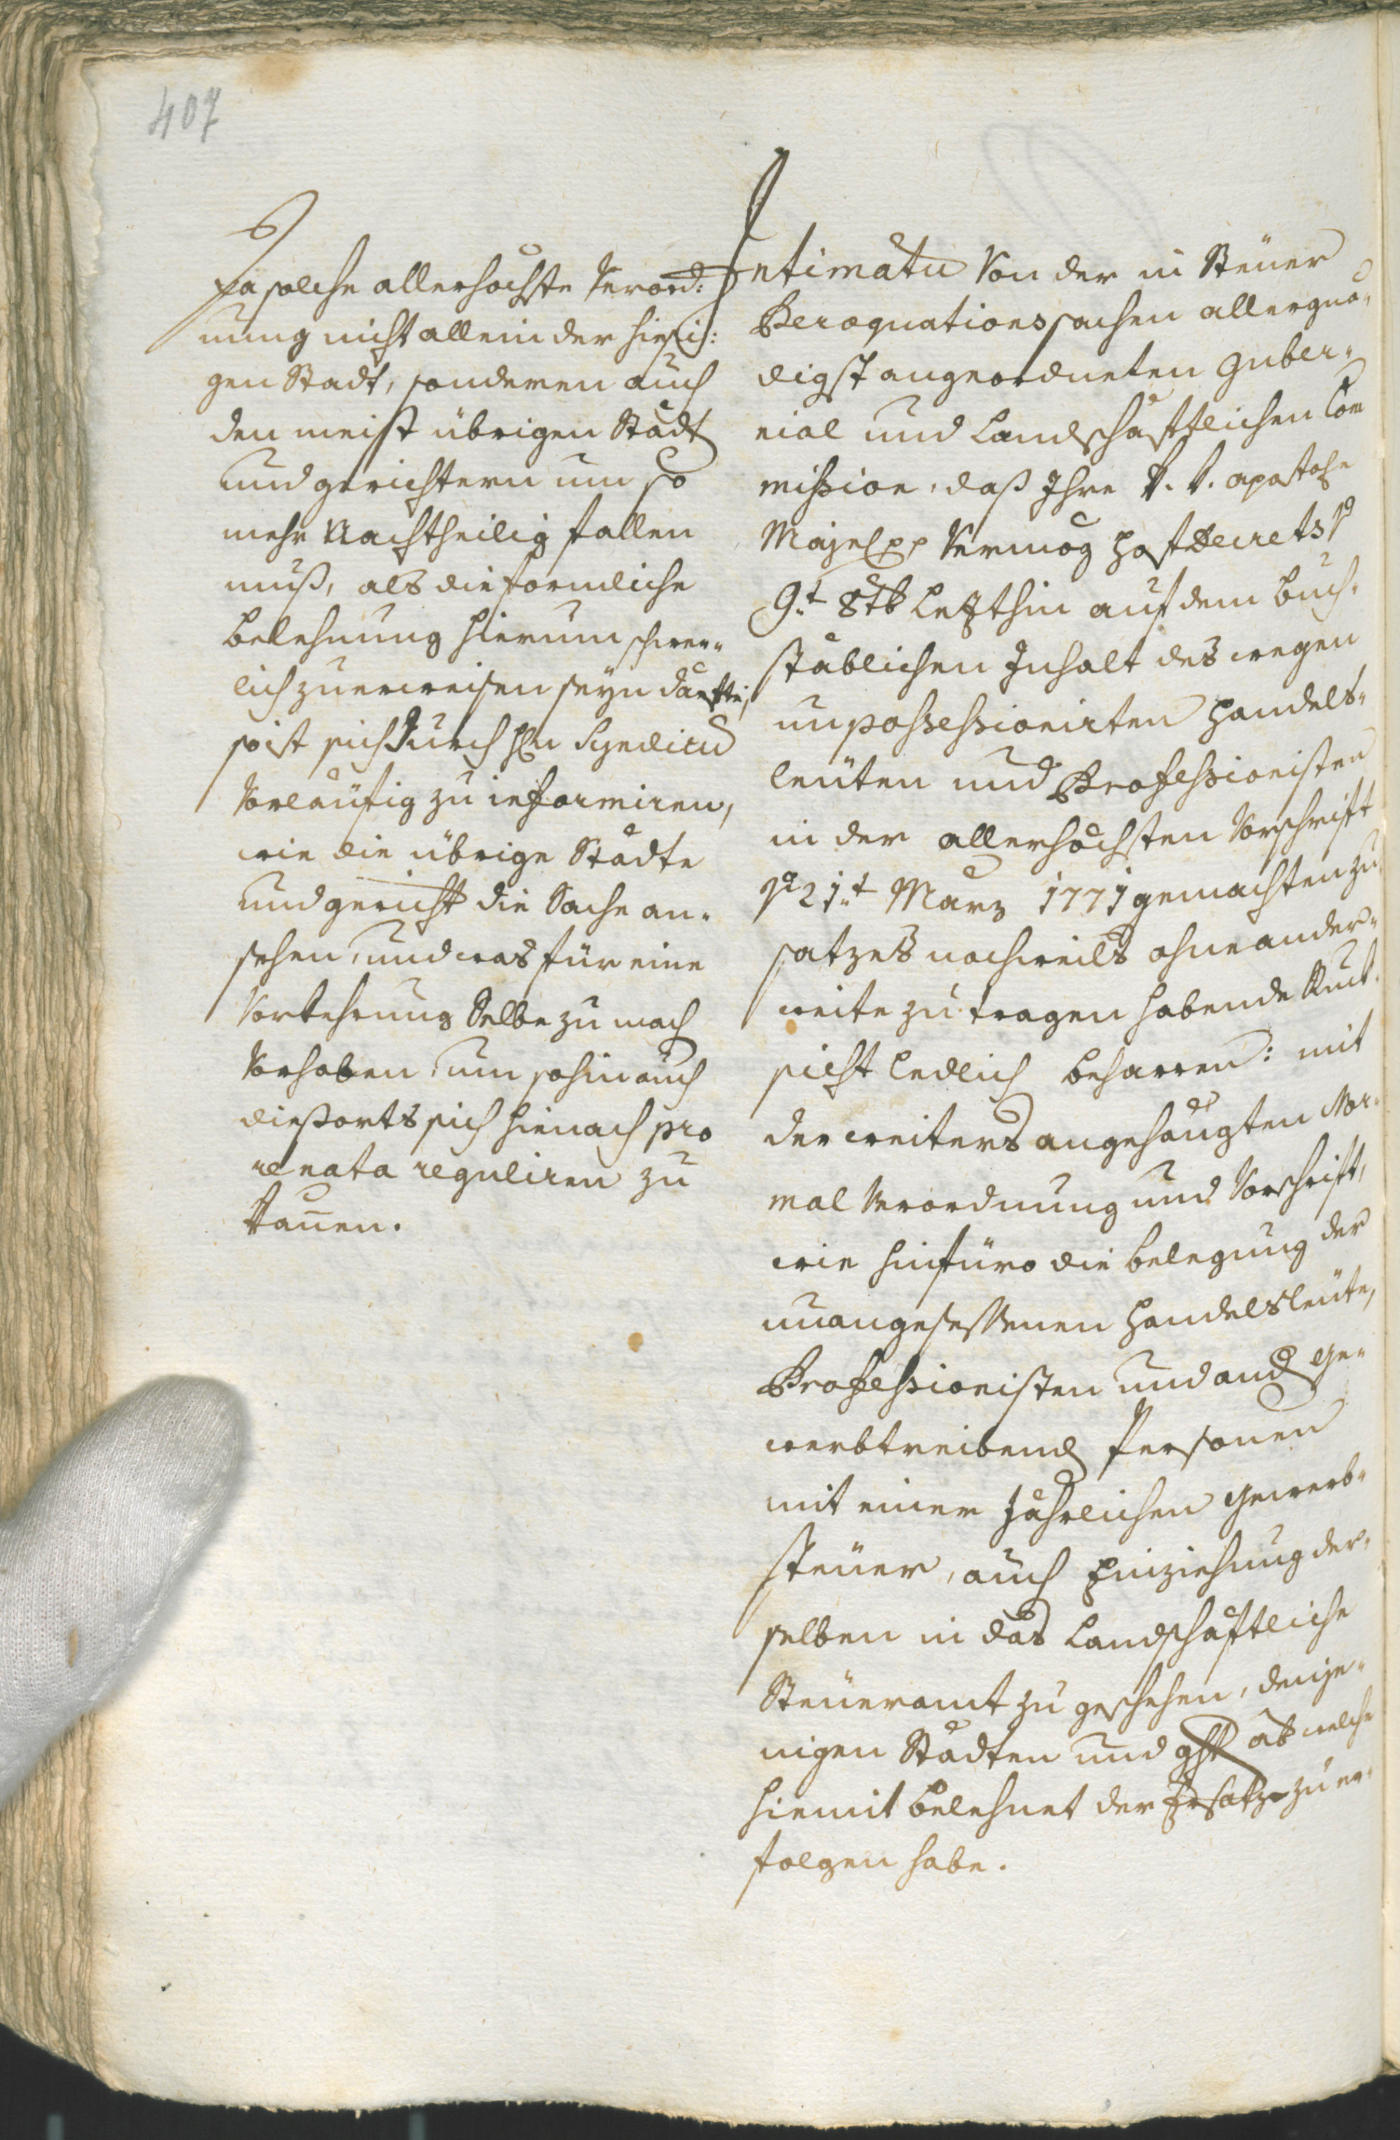 407
Da solche allerhöchste Verord:
nung nicht allein der hiesi:
gen Stadt, sonderen auch
den meist übrigen Städt
und gerichteren um so
mehr Nachtheilig fallen
muß, als die formliche
belehnung hierum schwer„
lich zu erweisen seyn dürfte,
so ist sich durch Hn Syndicu
vorläufig zu informiren,
wie die übrige Städte
und gericht die Sache an„
sehen, und was für eine
Vorkehrung Selbe zu mach
Vorhaben, um sohin auch
dießorts sich hienach pro
re nata reguliren zu
können.
Intimatu Von der in Steüer
Peræquations sachen allergnä„
digst angeordneten Guber„
nial und Landschäftlichen Com
mission, daß Ihre K. K. apostole
Majest pp Vermög Hof Decrets de
9.t 8tb letzthin auf dem buch„
stäblichen Inhalt des wegen
unpossessionirten Handels„
leüten und Professionisten
in der allerhöchsten Vorschrift
de 21.t März 1771 gemachten zu
satzes nochweils ohne ander„
weite zu tragen habende Ruck„
sicht ledlich beharren: mit
der weiters angehängten Nor„
mal Verordnung und Vorschrift,
wie hinfüro die belegung der
unangesessenen Handelsleüte,
Professionisten und and Ge„
werbtreibend Personen
mit einer jährlichen Gewerb„
steüer, auch Einziehung der„
selben in das Landschäftliche
Steüeramt zu geschehen, denje„
nigen Städten und ght ab welche
hiemit belehnet der Ersatz zu er„
folgen habe.